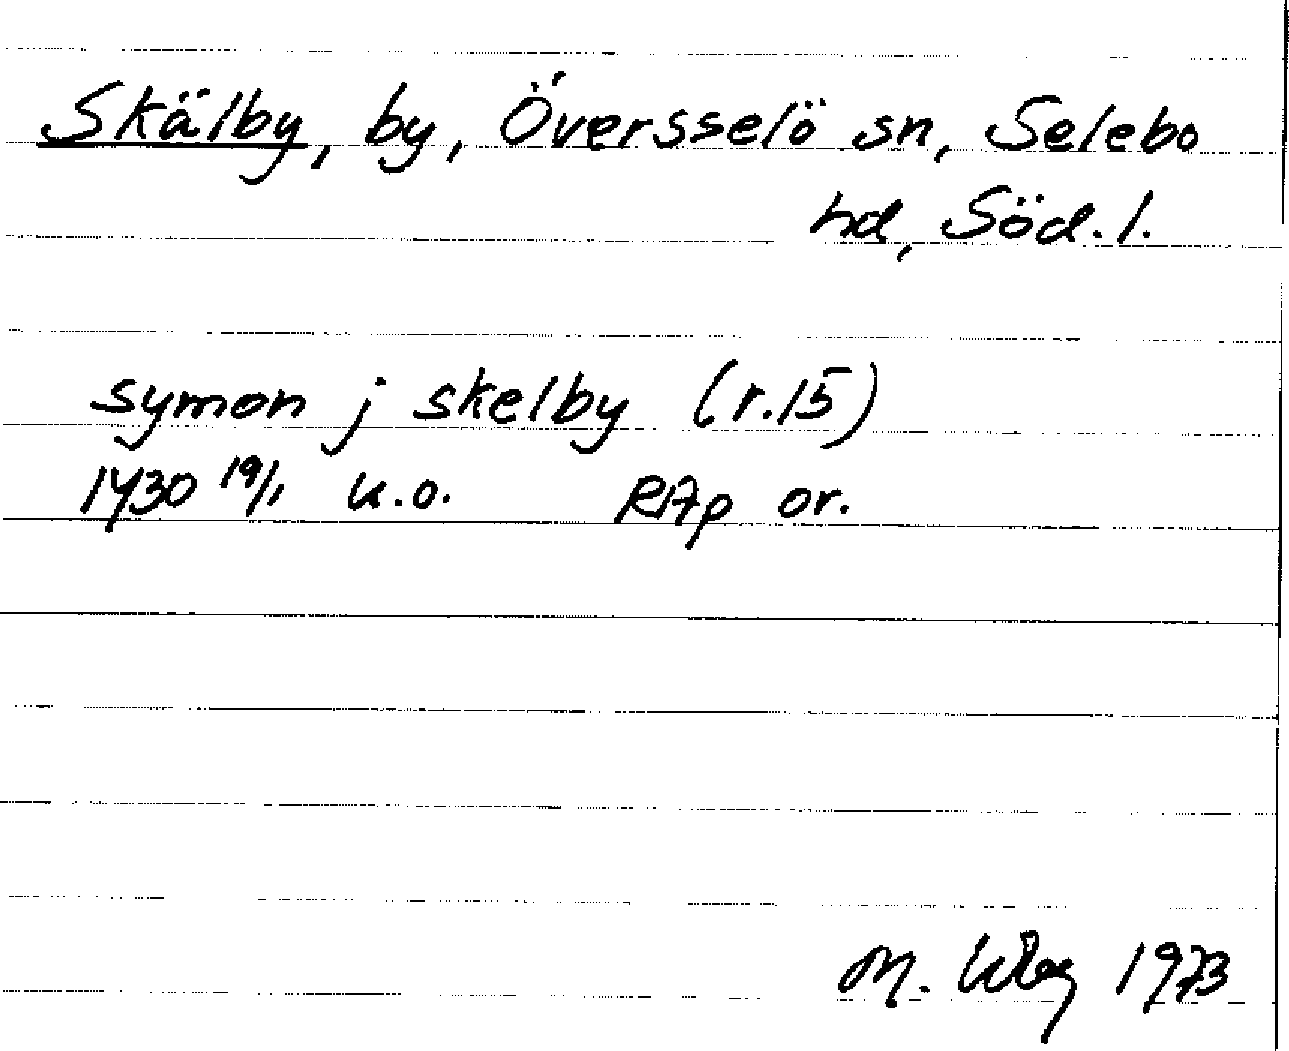 Skälby, by, Översselö sn, Selebo
hd, Söd. l.
symon j skelby (r.15)
1430 19/1 u.o. RAp or.
M. 1973